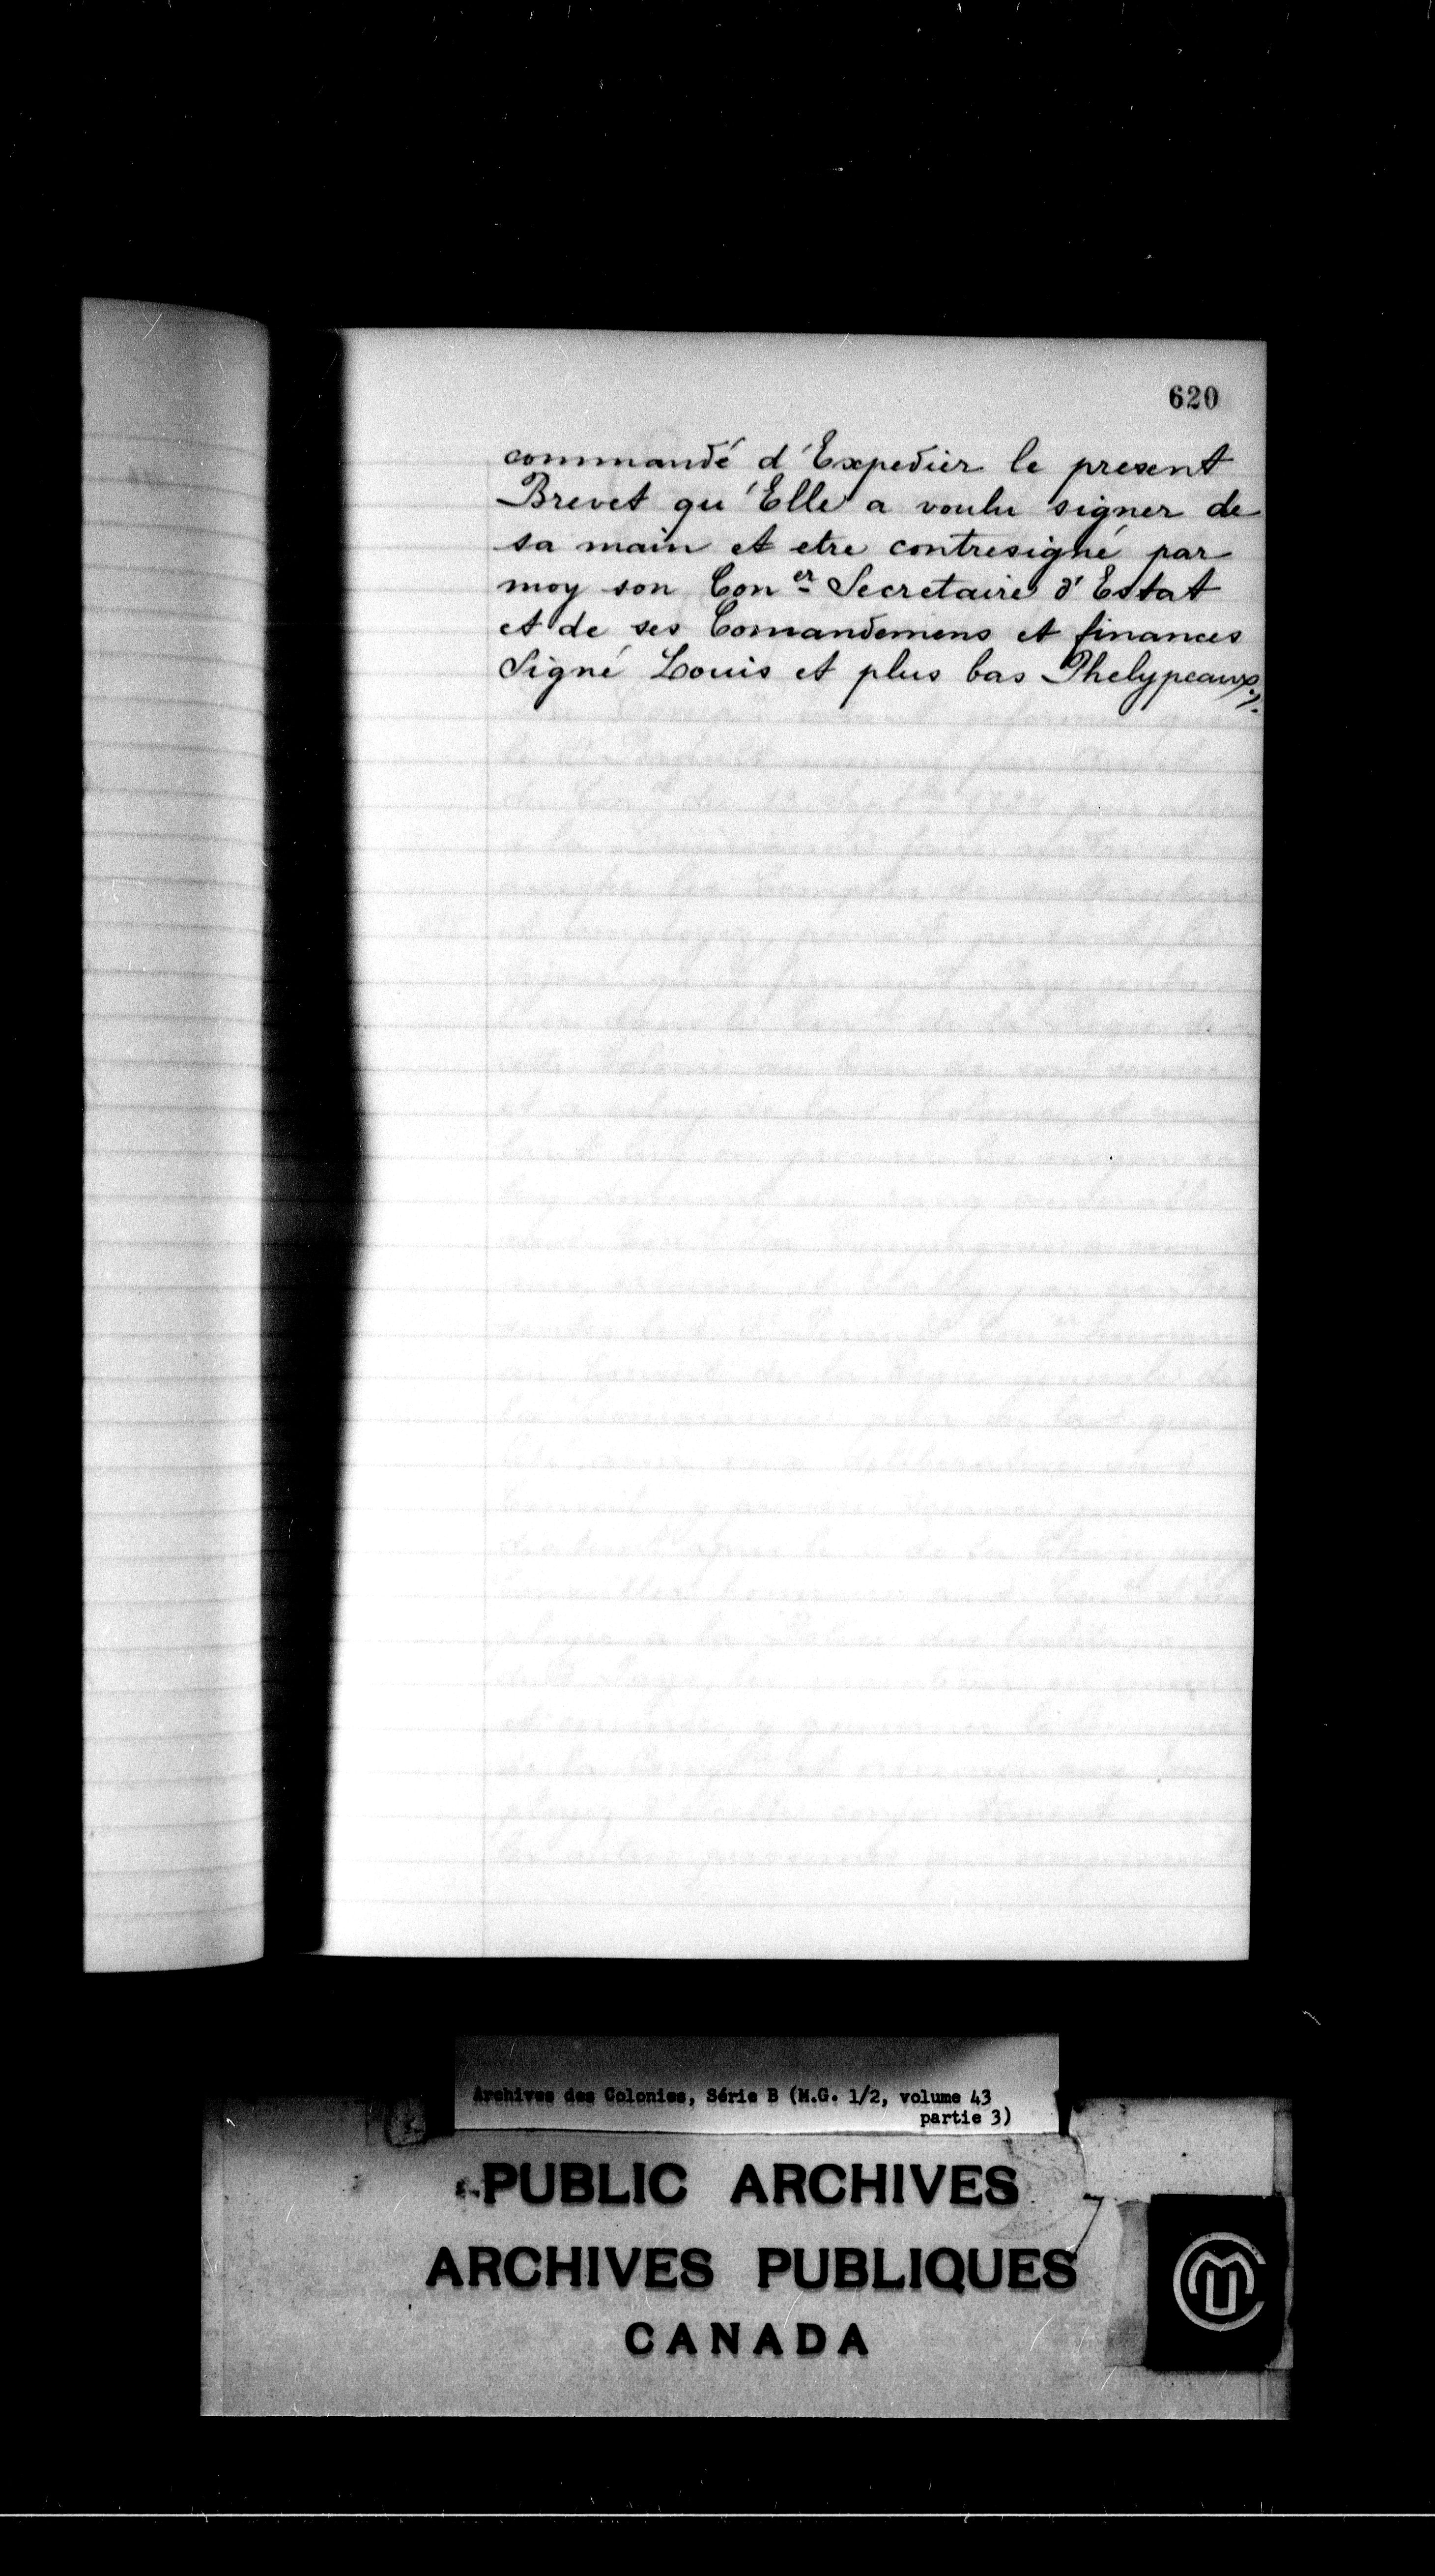 620
commandé d'Expedier le present
Brevet qu'Elle a voulu signer de
sa main et etre contresigné par
moy son Con.er Secretaire d'Estat
et de ses Comandemens et finances
Signé Louis et plus bas Phelypeaux
Archives des Colonies, Série B (M.G. 1/2, volume 43
partie 3)
PUBLIC ARCHIVES
ARCHIVES PUBLIQUES
CANADA